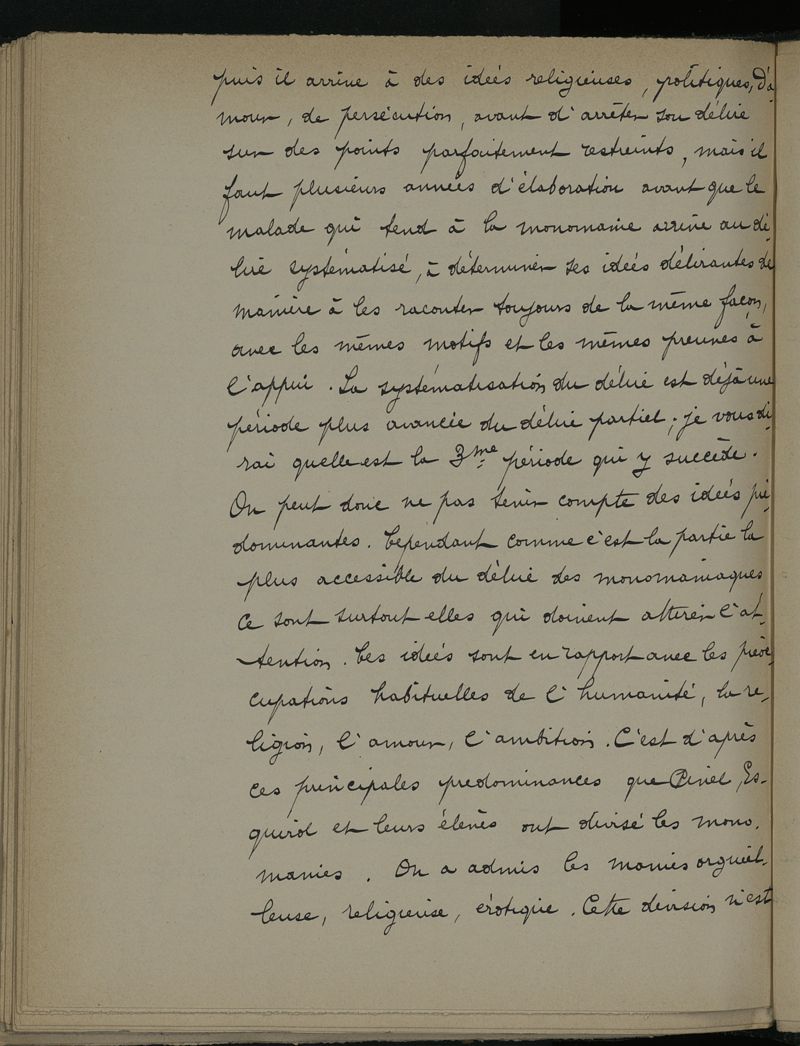 puis il arrive à des idées religieuses, politiques, d'a
mour, de persécution, avant d'arrêter son délire
sur des points parfaitement restreints, mais il
faut plusieurs années d'élaboration avant que le
malade qui tend à la monomanie arrive au dé-
lire systématisé, à déterminer ses idées délirantes de
manière à les raconter toujours de la même façon,
avec les mêmes motifs et les mêmes preuves à
l'appui. La systématisation du délire est déjà une
période plus avancée du délire partiel; je vous di
rai quelle est la 3me période qui y succède.
On peut donc ne pas tenir compte des idées pré
dominantes. Cependant comme c'est la partie la
plus accessible du délire des monomaniaques
ce sont surtout elles qui doivent attirer l'at-
tention. Ces idées sont en rapport avec les préoc
cupations habituelles de l'humanité, la re-
ligion, l'amour, l'ambition. C'est d'après
ces principales predominances que Pinel, Es-
quirol et leurs élèves ont divisé les mono-
manies. On a admis les manies orgueil-
leuse, religieuse, érotique. Cette division n'est